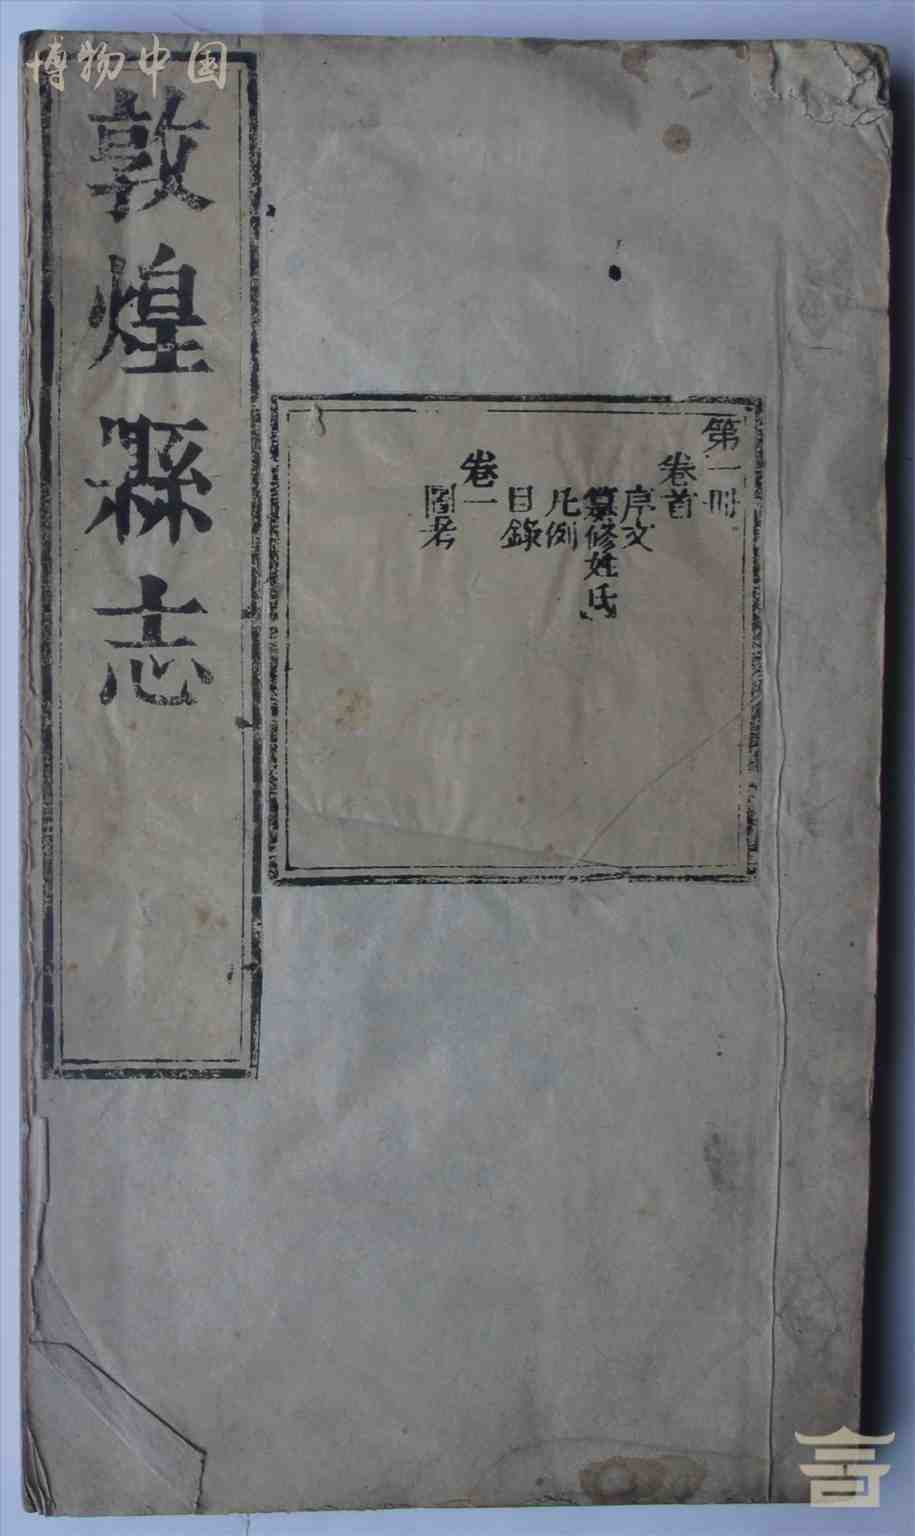 博物中国
敦煌縣志
第一冊
卷首
序文
纂修姓氏
凡例
目錄
卷一
圖考